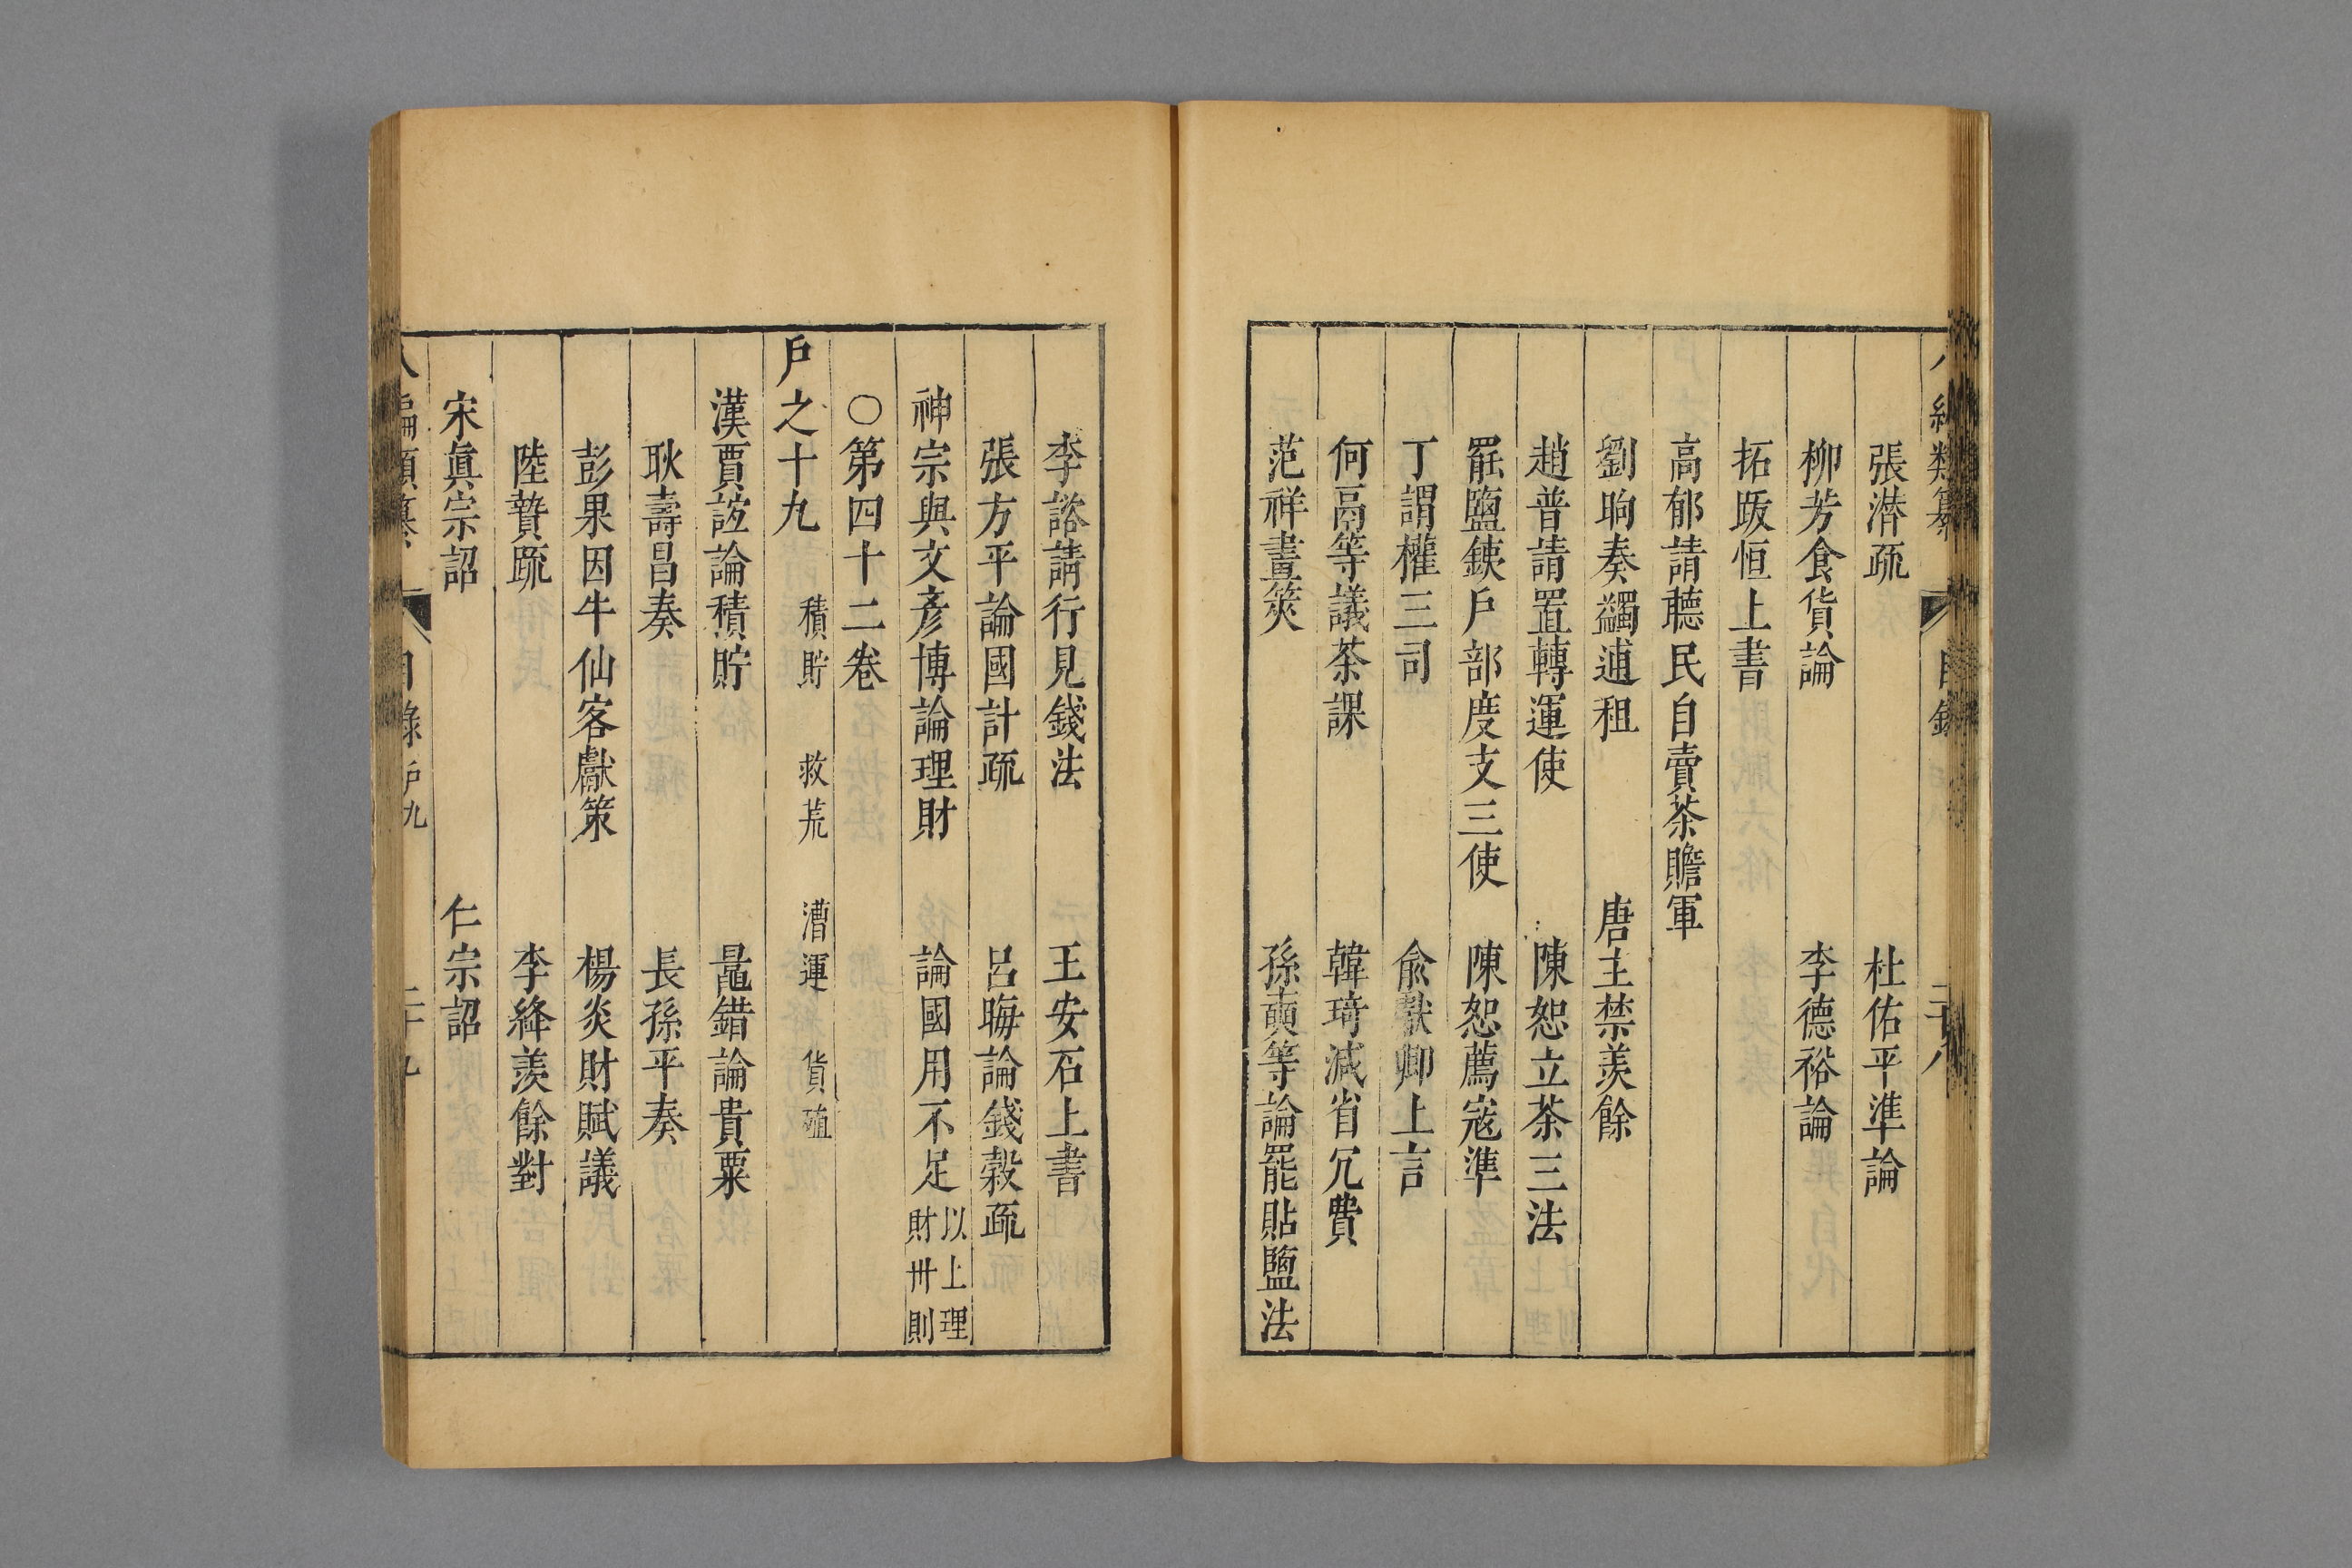 張潜疏　杜佑平準論
柳芳食貨論　李德裕論
拓䟦恒上書
高郁請聴民自賣茶贍軍
劉昫奏蠲逋租　唐主禁羡餘
趙普請置轉運使　陳恕立茶三法
罷鹽鐵戶部度支三使　陳恕薦寇準
丁謂權三司　俞獻卿上言
何鬲等議茶課　韓琦減省冗費
范祥畫筴　孫奭等論罷貼鹽法
李諮請行見錢法　王安石上書
張方平論國計疏　呂晦論錢穀疏
神宗與文彥博論理財　論國用不足 以上理財卅則
○第四十二卷
戶之十九　積貯　救荒　漕運　貨殖
漢賈誼論積貯　鼂錯論貴粟
耿壽昌奏　長孫平奏
彭果因牛仙客獻策　楊炎財賦議
陸贄疏　李絳羡餘對
宋眞宗詔　仁宗詔
八編類纂　目錄 戶九　二十九